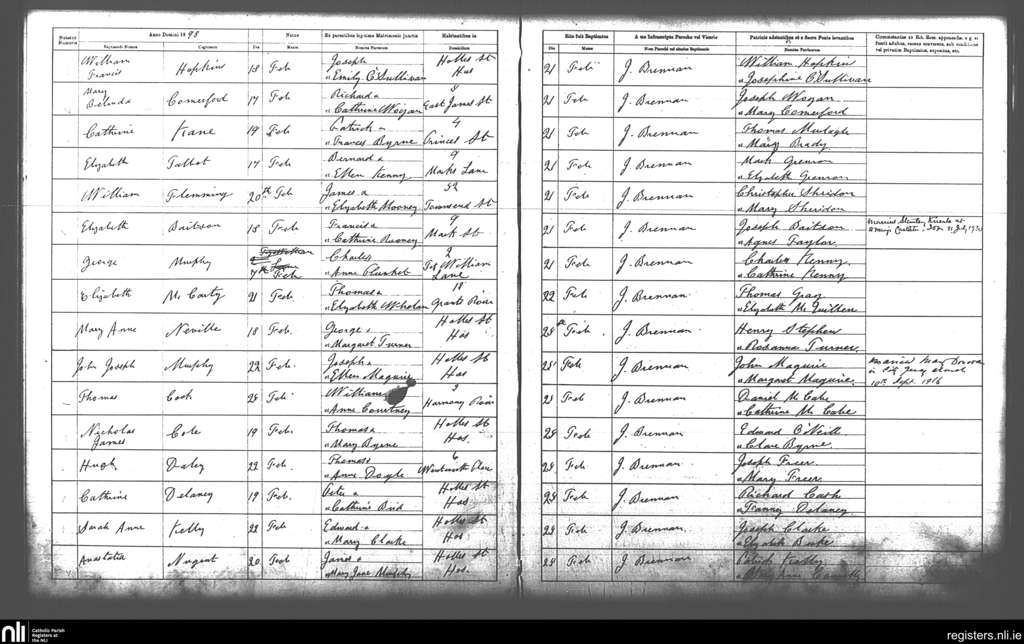 Anno Domini 1898
Natus
Ex parentibus legitimo Matrimonio junctis
Habitantibus in
Rite fuit Baptizatus
A me Infrascripto Parocho vel Vicario
Notatur Numerus
Baptizandi Nomen
Cognomen
Die
Mense
Nomina Parentum
Domicilium
Die
Mense
Nomen Parochi vel alterius Baptizantis
William Francis Hopkins 13 Feb Joseph & Emily O'Sullivan Holles St Hos 21 Feb J. Brennan William Hopkins & Josephine O'Sullivan
Mary Belinda Comerford 17 Feb Richard & Cathrine Wogan 8 East James St 21 Feb J. Brennan Joseph Wogan & Mary Comerford
Cathrine Kane 19 Feb Patrick & Frances Byrne 4 Princes St 21 Feb J. Brennan Thomas & Mary Brady
Elizabeth Talbot 17 Feb Bernard & Ellen Kenny 9 Marks Lane 21 Feb J. Brennan Mark & Elizabeth
William Flemming 20th Feb James & Elizabeth Mooney 52 Townsend St 21 Feb J. Brennan Christopher Sheridan & Mary Sheridan
Elizabeth Baitson 15 Feb Francis & Cathrine Rooney 9 Mark St 21 Feb J. Brennan Joseph Baitson & Agnes Taylor
George Murphy 7th Feb Charles & Anne Plunket 2 Fitz William Lane 21 Feb J. Brennan Charles Kenny & Cathrine Kenny
Elizabeth McCarty 21 Feb Thomas & Elizabeth Whelan 18 Grants Row 22 Feb J. Brennan Thomas Gray & Elizabeth McQuillen
Mary Anne Neville 18 Feb. George & Margaret Turner Holles St Hos 25th Feb J. Brennan Henry Stephen & Rosanna Turner
John Joseph Murphy 22 Feb. Joseph & Ellen Maguire Holles St Hos 25 Feb J. Brennan John Maguire & Margaret Maguire married Mary 10th Sept. 1916
Thomas Cook 25 Feb William & Anne Courtney 3 Harmony Row 25 Feb J. Brennan Daniel McCabe & Cathrine McCabe
Nicholas James Cole 19 Feb. Thomas & Mary Byrne Holles St Hos. 25 Feb J. Brennan Edward O'Neill & Clare Byrne
Hugh Daley 22 Feb. Thomas & Anne Doyle 6 Wentworth Place 25 Feb J. Brennan Joseph Freer & Mary Freer
Cathrine Delaney 19 Feb. Peter & Cathrine Reid Holles St Hos 25 Feb J. Brennan Richard Cash & Fanny Delaney
Sarah Anne Kelly 22 Feb Edward & Mary Clarke Holles St Hos 25 Feb J. Brennan Joseph Clarke & Elizabeth Burke
Anastatia Nugent 20 Feb James & Mary Jane Murphy Holles St Hos. 25 Feb J. Brennan Patrick Kelly
nli
Catholic Parish
Registers at
the NLI
registers.nli.ie